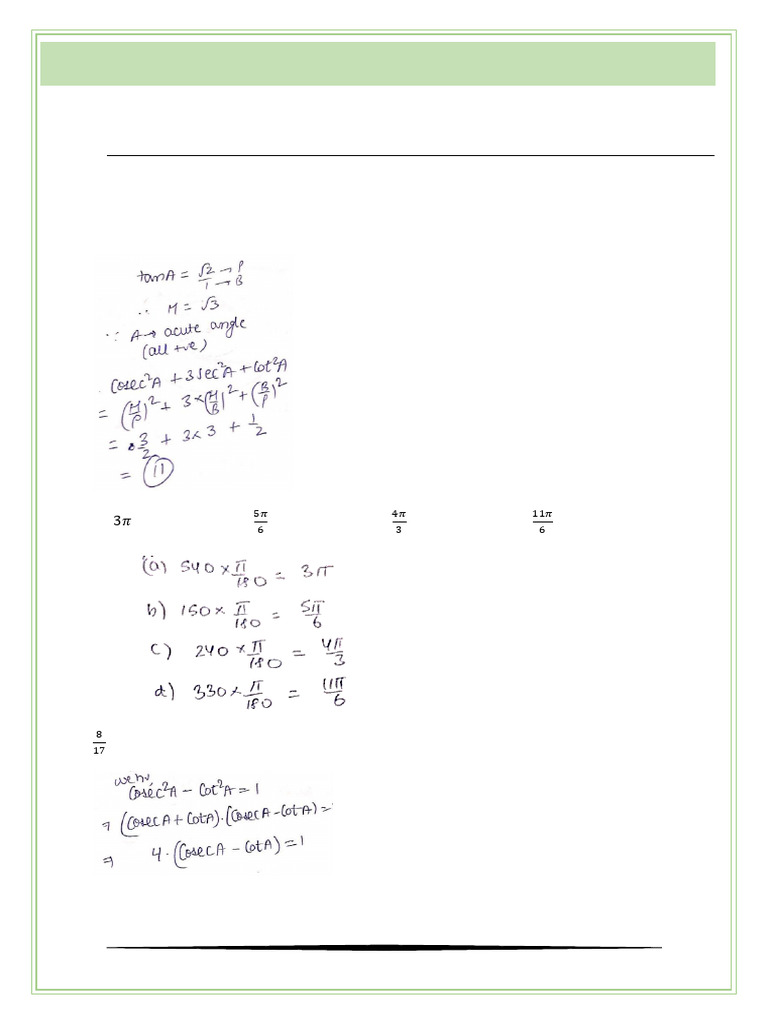 tanA = √2/1 → P → B
∴ H = √3
∵ A → acute angle
(all +ve)
Cosec²A + 3Sec²A + Cot²A
= (H/P)² + 3×(H/B)² + (B/P)²
= 3/2 + 3×3 + 1/2
= 11
3π 5π/6 4π/3 11π/6
(a) 540 × π/180 = 3π
b) 150 × π/180 = 5π/6
c) 240 × π/180 = 4π/3
d) 330 × π/180 = 11π/6
8/17
Cosec²A - Cot²A = 1
⇒ (CosecA + CotA)·(CosecA - CotA) =
⇒ 4·(CosecA - CotA) = 1